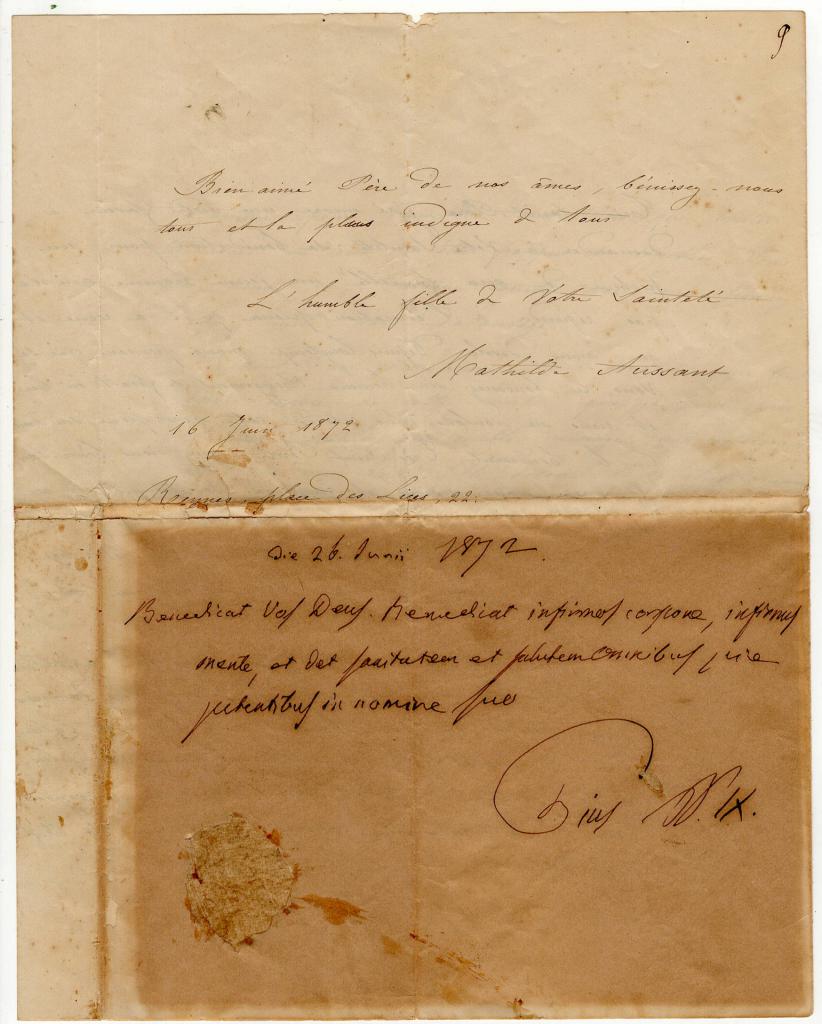 9
Bien aimé Père de nos âmes, bénissez-nous
tous et la plus indigne de tous
L'humble fille de Votre Sainteté
Mathilde Aussant
16 Juin 1872
Rennes, place des Lices, 22.
Die 26. Junii 1872.
Benedicat Vos Deus. Benedicat infirmos corpore, infirmos
mente, et det sanitatem et salutem omnibus pie
petentibus in nomine suo
Pius PP. IX.